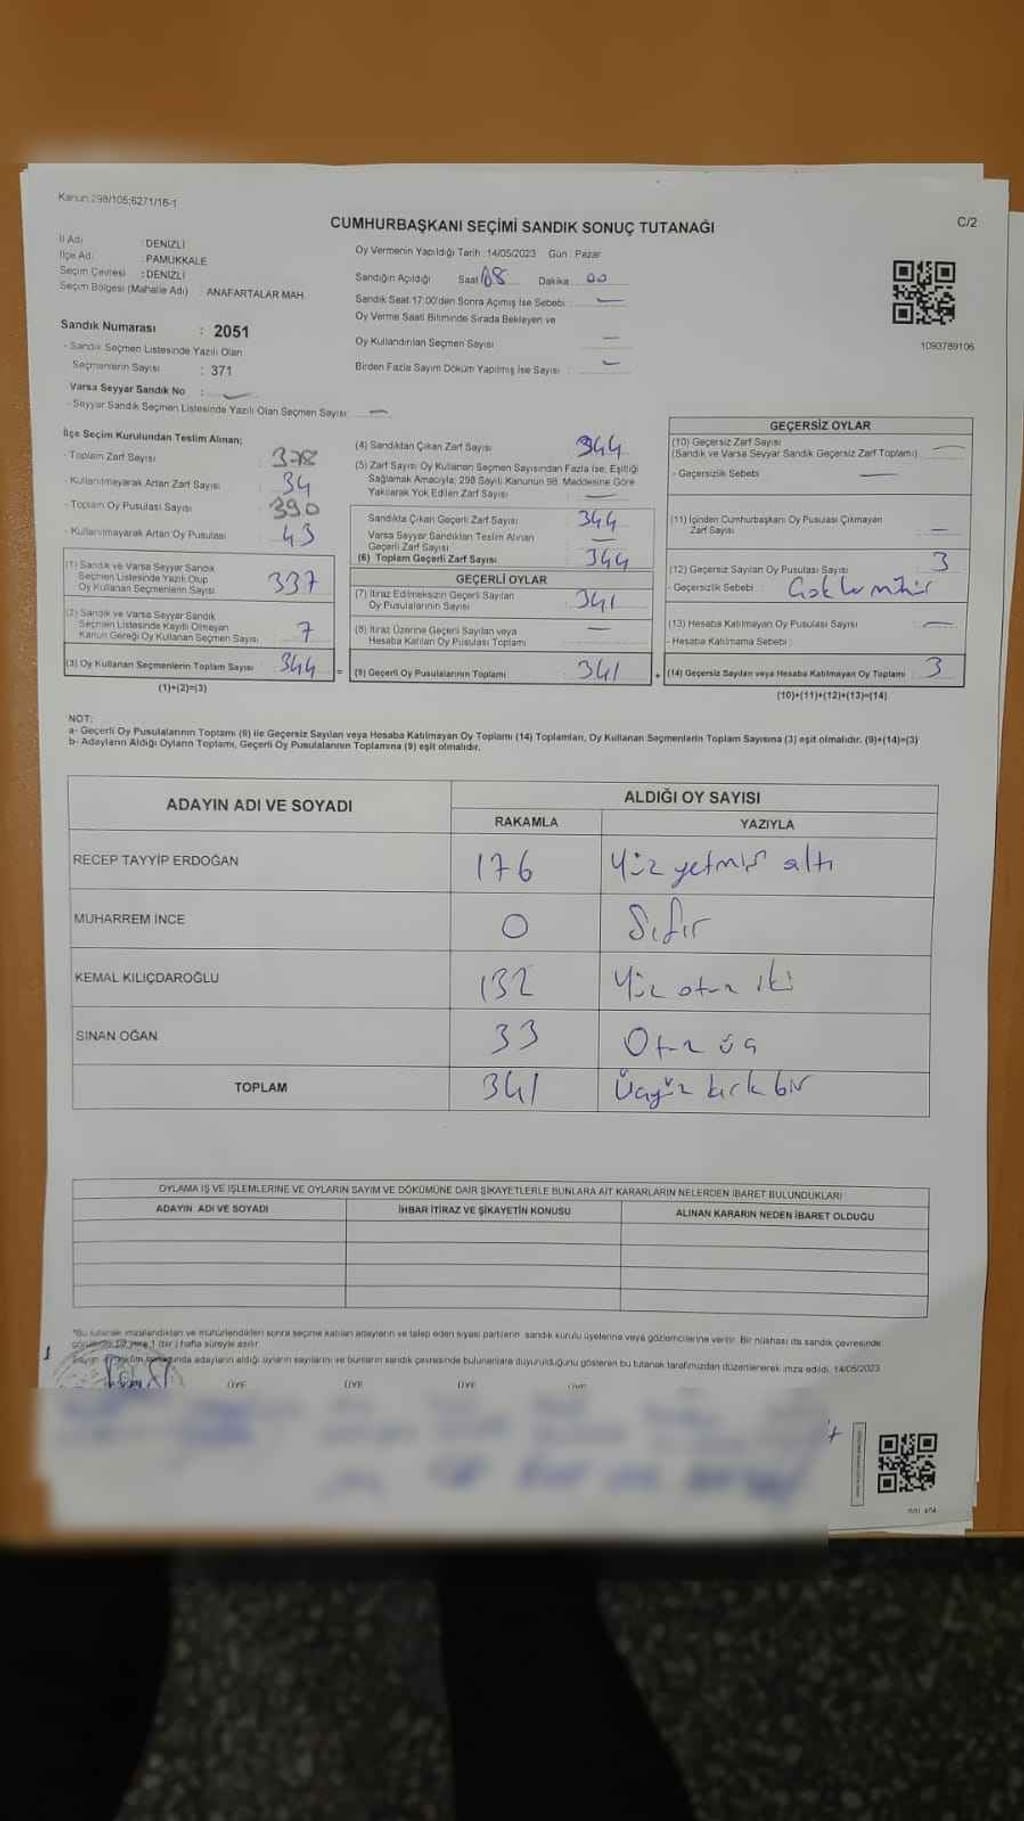 Kanun:298/105;6271/16-1
CUMHURBAŞKANI SEÇİMİ SANDIK SONUÇ TUTANAĞI
C/2
İl Adı : DENİZLİ
İlçe Adı : PAMUKKALE
Seçim Çevresi : DENİZLİ
Seçim Bölgesi (Mahalle Adı) : ANAFARTALAR MAH.
Sandık Numarası : 2051
- Sandık Seçmen Listesinde Yazılı Olan
Seçmenlerin Sayısı : 371
Varsa Seyyar Sandık No :
- Seyyar Sandık Seçmen Listesinde Yazılı Olan Seçmen Sayısı: —
Oy Vermenin Yapıldığı Tarih : 14/05/2023 Gün : Pazar
Sandığın Açıldığı Saat 08 Dakika : 00
Sandık Saat 17:00'den Sonra Açılmış İse Sebebi : —
Oy Verme Saati Bitiminde Sırada Bekleyen ve
Oy Kullandırılan Seçmen Sayısı —
Birden Fazla Sayım Döküm Yapılmış İse Sayısı : —
1090789106
İlçe Seçim Kurulundan Teslim Alınan;
- Toplam Zarf Sayısı 378
- Kullanılmayarak Artan Zarf Sayısı 34
- Toplam Oy Pusulası Sayısı 390
- Kullanılmayarak Artan Oy Pusulası 43
(1) Sandık ve Varsa Seyyar Sandık
Seçmen Listesinde Yazılı Olup
Oy Kullanan Seçmenlerin Sayısı 337
(2) Sandık ve Varsa Seyyar Sandık
Seçmen Listesinde Kayıtlı Olmayan
Kanun Gereği Oy Kullanan Seçmen Sayısı 7
(3) Oy Kullanan Seçmenlerin Toplam Sayısı 344
(1)+(2)=(3)
(4) Sandıktan Çıkan Zarf Sayısı 344
(5) Zarf Sayısı Oy Kullanan Seçmen Sayısından Fazla İse, Eşitliği
Sağlamak Amacıyla; 298 Sayılı Kanunun 98. Maddesine Göre
Yakılarak Yok Edilen Zarf Sayısı —
Sandıkta Çıkan Geçerli Zarf Sayısı 344
Varsa Seyyar Sandıktan Teslim Alınan
Geçerli Zarf Sayısı —
(6) Toplam Geçerli Zarf Sayısı 344
GEÇERLİ OYLAR
(7) İtiraz Edilmeksizin Geçerli Sayılan
Oy Pusulalarının Sayısı 341
(8) İtiraz Üzerine Geçerli Sayılan veya
Hesaba Katılan Oy Pusulası Toplamı —
= (9) Geçerli Oy Pusulalarının Toplamı 341
GEÇERSİZ OYLAR
(10) Geçersiz Zarf Sayısı
(Sandık ve Varsa Seyyar Sandık Geçersiz Zarf Toplamı) —
- Geçersizlik Sebebi —
(11) İçinden Cumhurbaşkanı Oy Pusulası Çıkmayan
Zarf Sayısı —
(12) Geçersiz Sayılan Oy Pusulası Sayısı 3
- Geçersizlik Sebebi : Çoklu mühür
(13) Hesaba Katılmayan Oy Pusulası Sayısı —
- Hesaba Katılmama Sebebi :
+ (14) Geçersiz Sayılan veya Hesaba Katılmayan Oy Toplamı 3
(10)+(11)+(12)+(13)=(14)
NOT:
a- Geçerli Oy Pusulalarının Toplamı (9) ile Geçersiz Sayılan veya Hesaba Katılmayan Oy Toplamı (14) Toplamları, Oy Kullanan Seçmenlerin Toplam Sayısına (3) eşit olmalıdır. (9)+(14)=(3)
b- Adayların Aldığı Oyların Toplamı, Geçerli Oy Pusulalarının Toplamına (9) eşit olmalıdır.
ADAYIN ADI VE SOYADI
ALDIĞI OY SAYISI
RAKAMLA YAZIYLA
RECEP TAYYİP ERDOĞAN 176 Yüz yetmiş altı
MUHARREM İNCE 0 Sıfır
KEMAL KILIÇDAROĞLU 132 Yüz otuz iki
SİNAN OĞAN 33 Otuz üç
TOPLAM 341 Üçyüz kırk bir
OYLAMA İŞ VE İŞLEMLERİNE VE OYLARIN SAYIM VE DÖKÜMÜNE DAİR ŞİKAYETLERLE BUNLARA AİT KARARLARIN NELERDEN İBARET BULUNDUKLARI
ADAYIN ADI VE SOYADI İHBAR İTİRAZ VE ŞİKAYETİN KONUSU ALINAN KARARIN NEDEN İBARET OLDUĞU
*Bu tutanak imzalandıktan ve mühürlendikten sonra seçime katılan adayların ve talep eden siyasi partilerin sandık kurulu üyelerine veya gözlemcilerine verilir. Bir nüshası da sandık çevresinde
1 (bir) hafta süreyle asılır.
adayların aldığı oyların sayılarını ve bunların sandık çevresinde bulunanlara duyurulduğunu gösteren bu tutanak tarafımızdan düzenlenerek imza edildi. 14/05/2023
ÜYE ÜYE ÜYE ÜYE